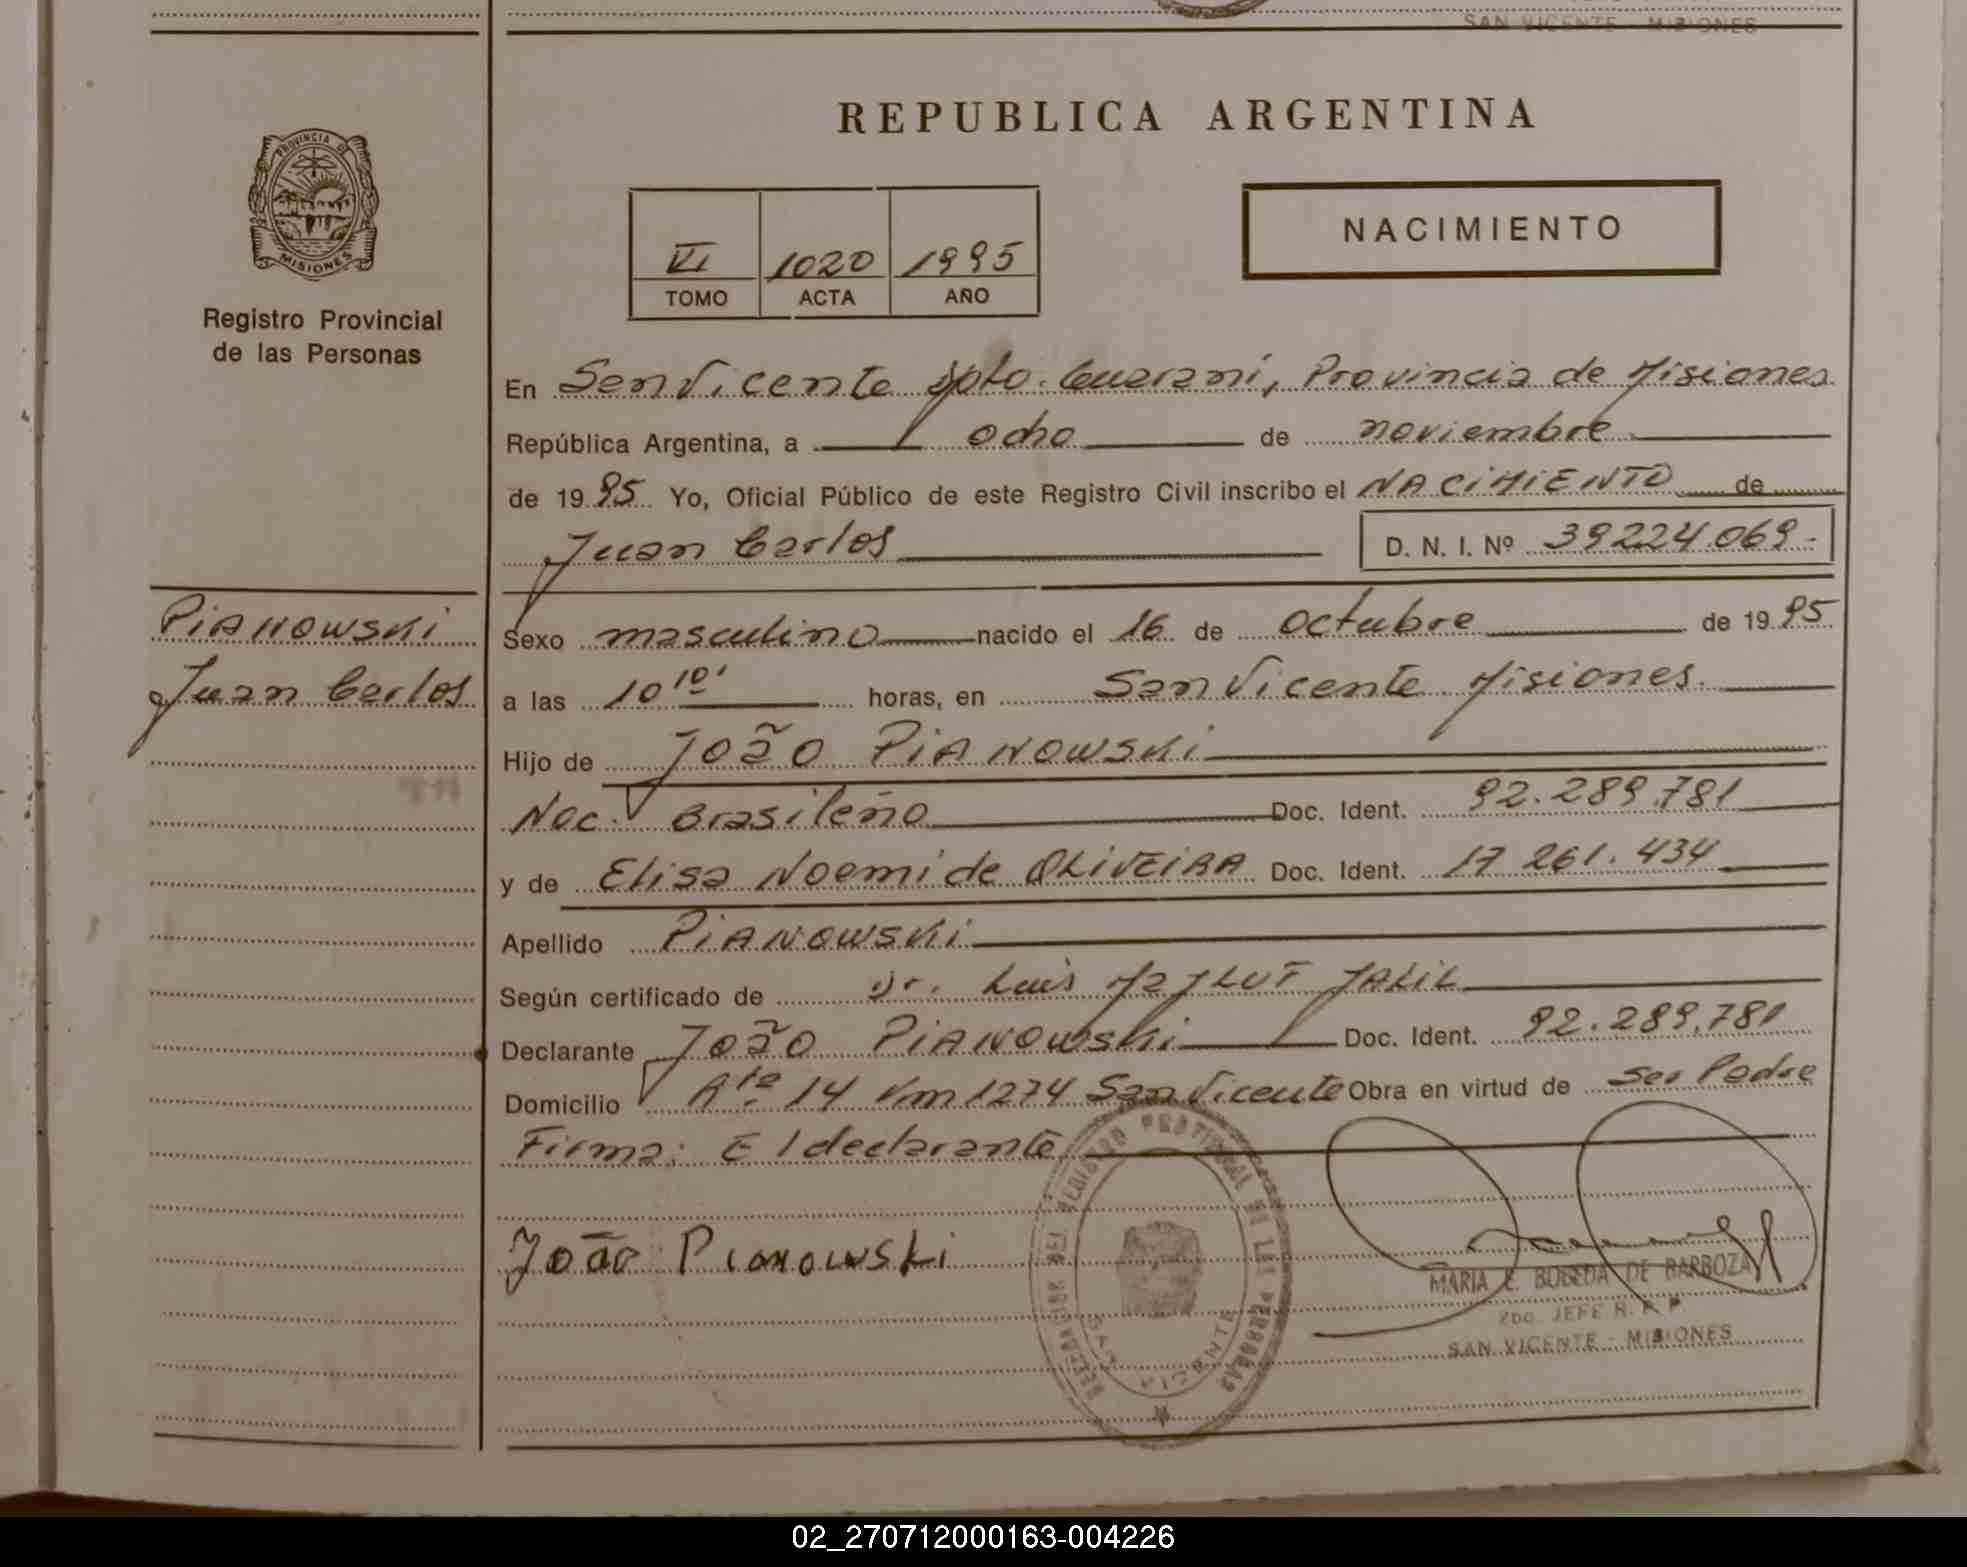 SAN VICENTE - MISIONES
REPUBLICA ARGENTINA
PROVINCIA DE
MISIONES
Registro Provincial
de las Personas
NACIMIENTO
VI 1020 1995
TOMO ACTA AÑO
En San Vicente Dpto. Guarani, Provincia de Misiones
República Argentina, a ocho de noviembre
de 1995 Yo, Oficial Público de este Registro Civil inscribo el NACIMIENTO de
Juan Carlos D. N. I. Nº 39224.069-
PIANOWSKI
Juan Carlos
Sexo masculino nacido el 16 de octubre de 1995
a las 10 10' horas, en San Vicente Misiones.
Hijo de João PIANOWSKI
Nac. Brasileño Doc. Ident. 92.289.781
y de Elisa Noemi de OLIVEIRA Doc. Ident. 17 261.434
Apellido PIANOWSKI
Según certificado de Dr. Luis JALIL
Declarante João PIANOWSKI Doc. Ident. 92.289.781
Domicilio Rta 14 Km 1274 San Vicente Obra en virtud de ser Padre
Firma: El declarante
João Pianowski
REGISTRO PROVINCIAL DE LAS PERSONAS
SAN VICENTE
MARIA E. BOBEDA DE BARBOZA
2DO. JEFE R. P. P
SAN VICENTE - MISIONES
02_270712000163-004226